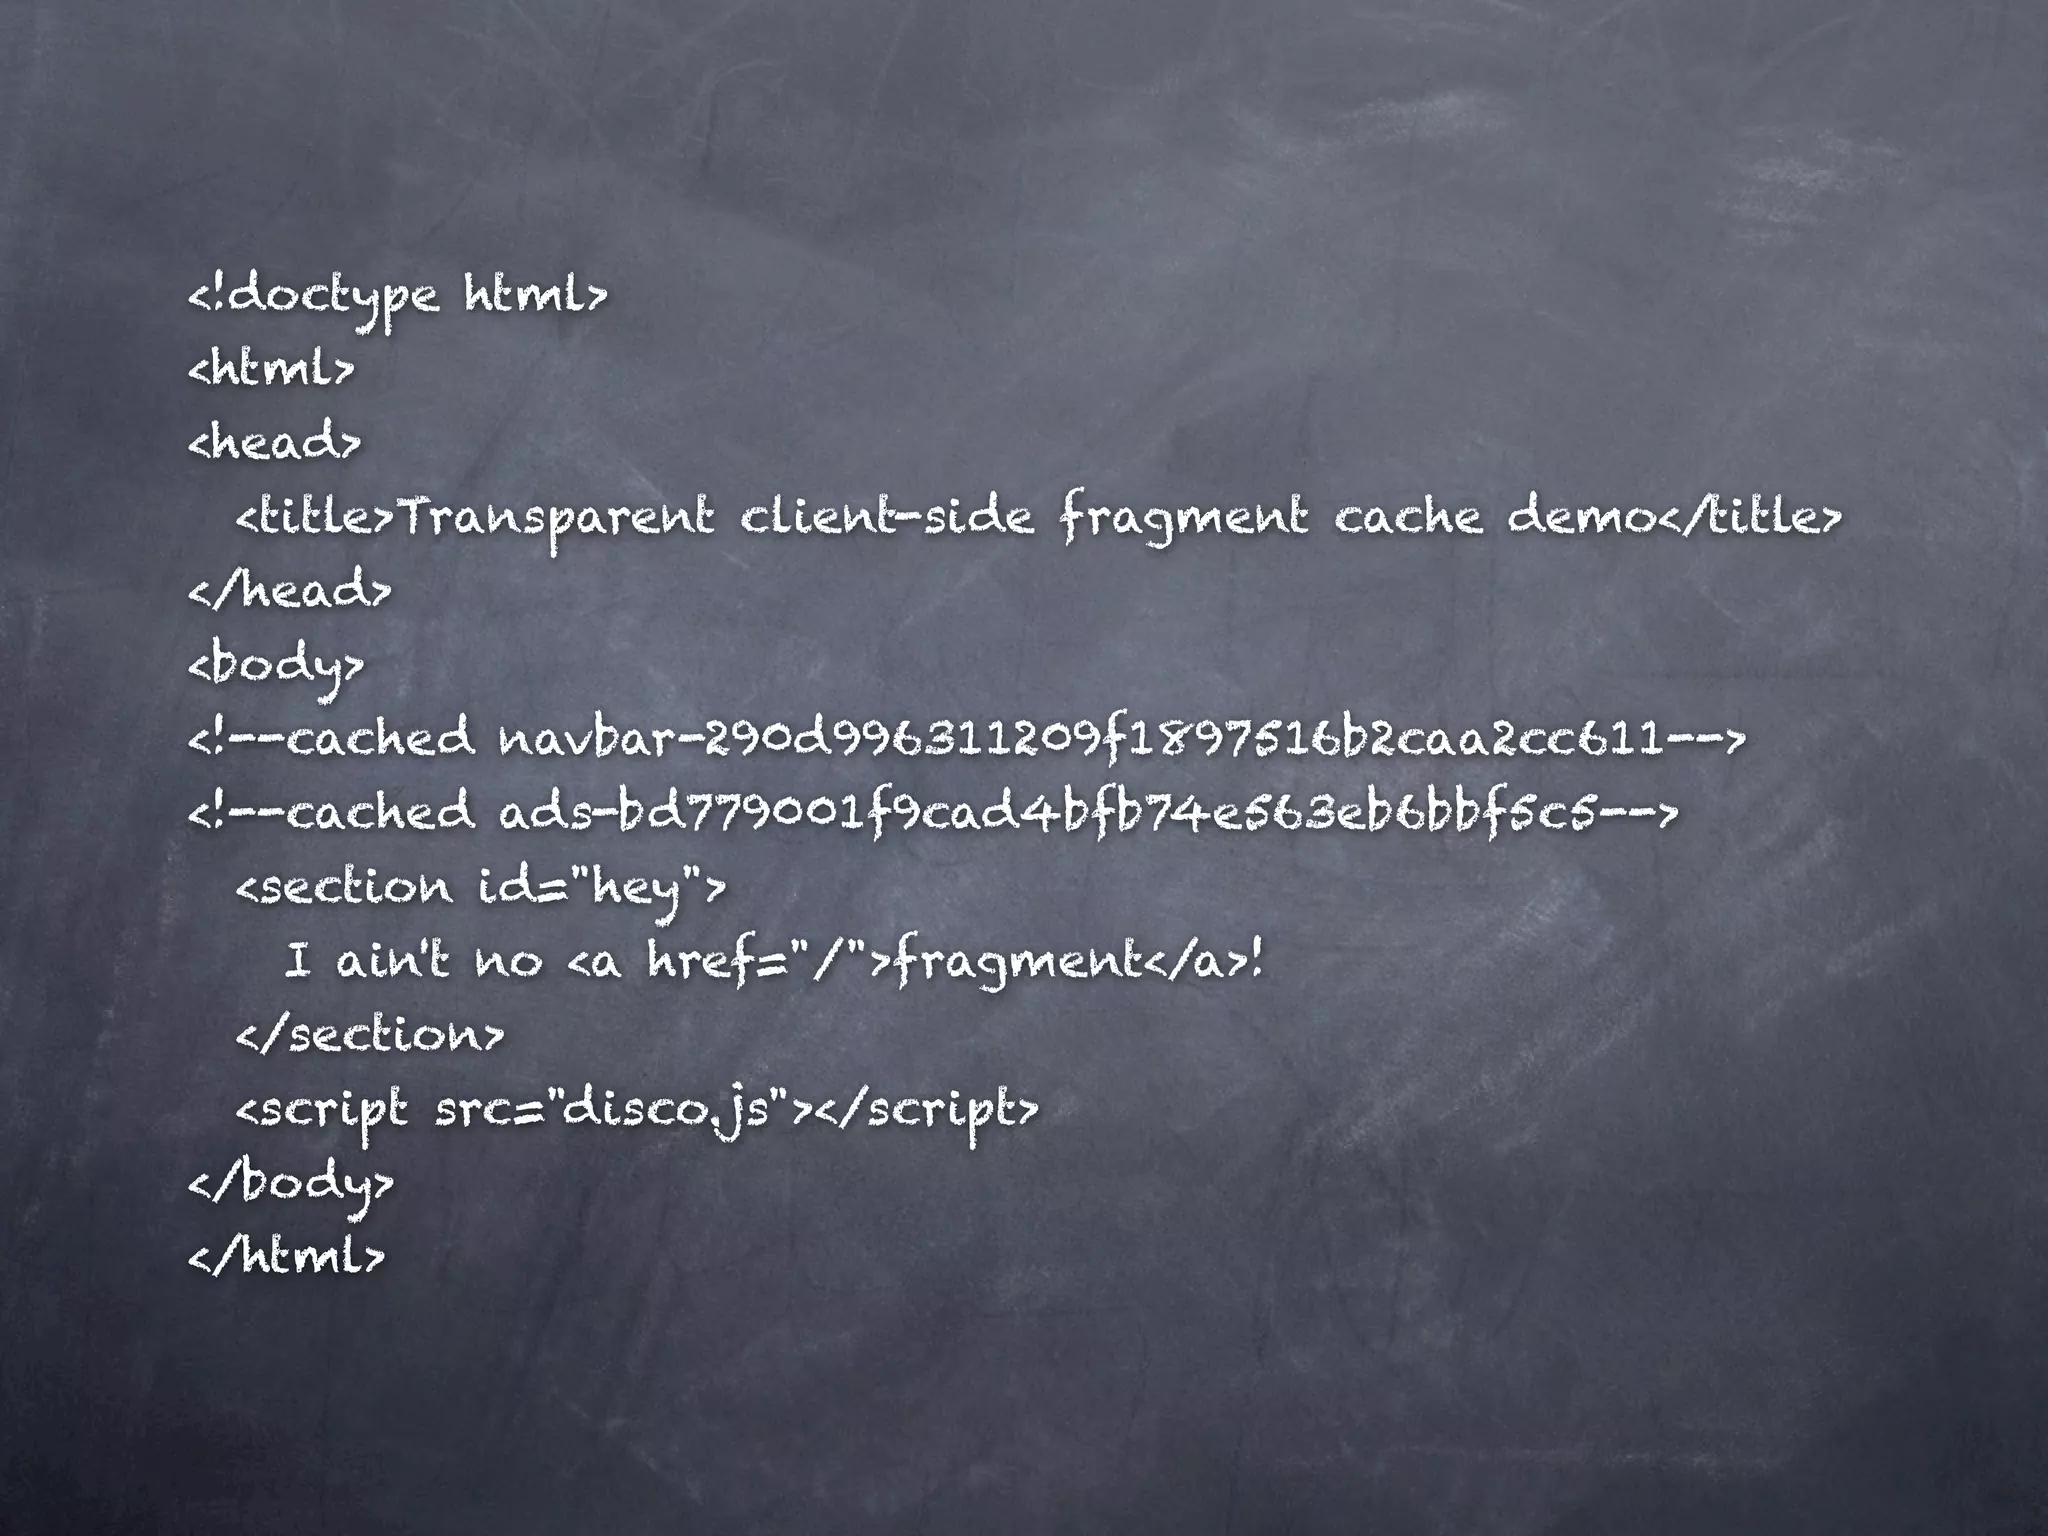 <!doctype html>
<html>
<head>
<title>Transparent client-side fragment cache demo</title>
</head>
<body>
<!--cached navbar-290d996311209f1897516b2caa2cc611-->
<!--cached ads-bd779001f9cad4bfb74e563eb6bbf5c5-->
<section id="hey">
I ain't no <a href="/">fragment</a>!
</section>
<script src="disco.js"></script>
</body>
</html>